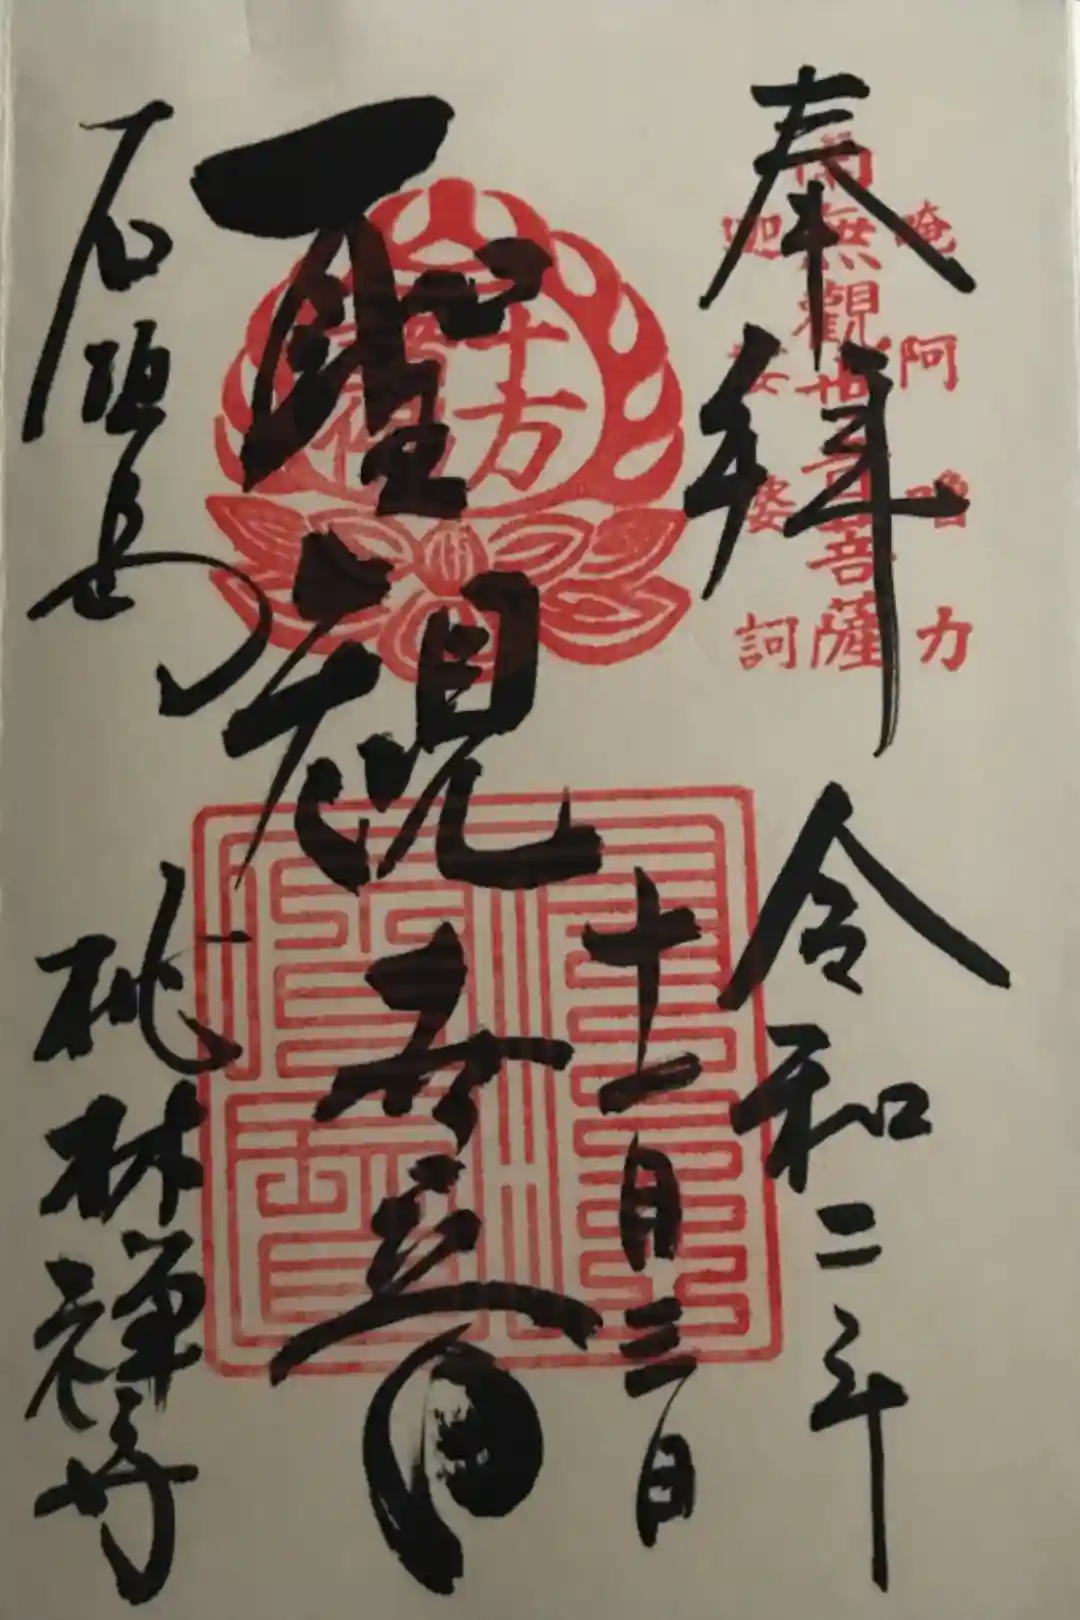 奉拝
令和二年
十一月三日
聖観世音
石垣島
桃林禅寺
唵阿嚕力
南無觀世音菩薩
迦娑婆訶
十方